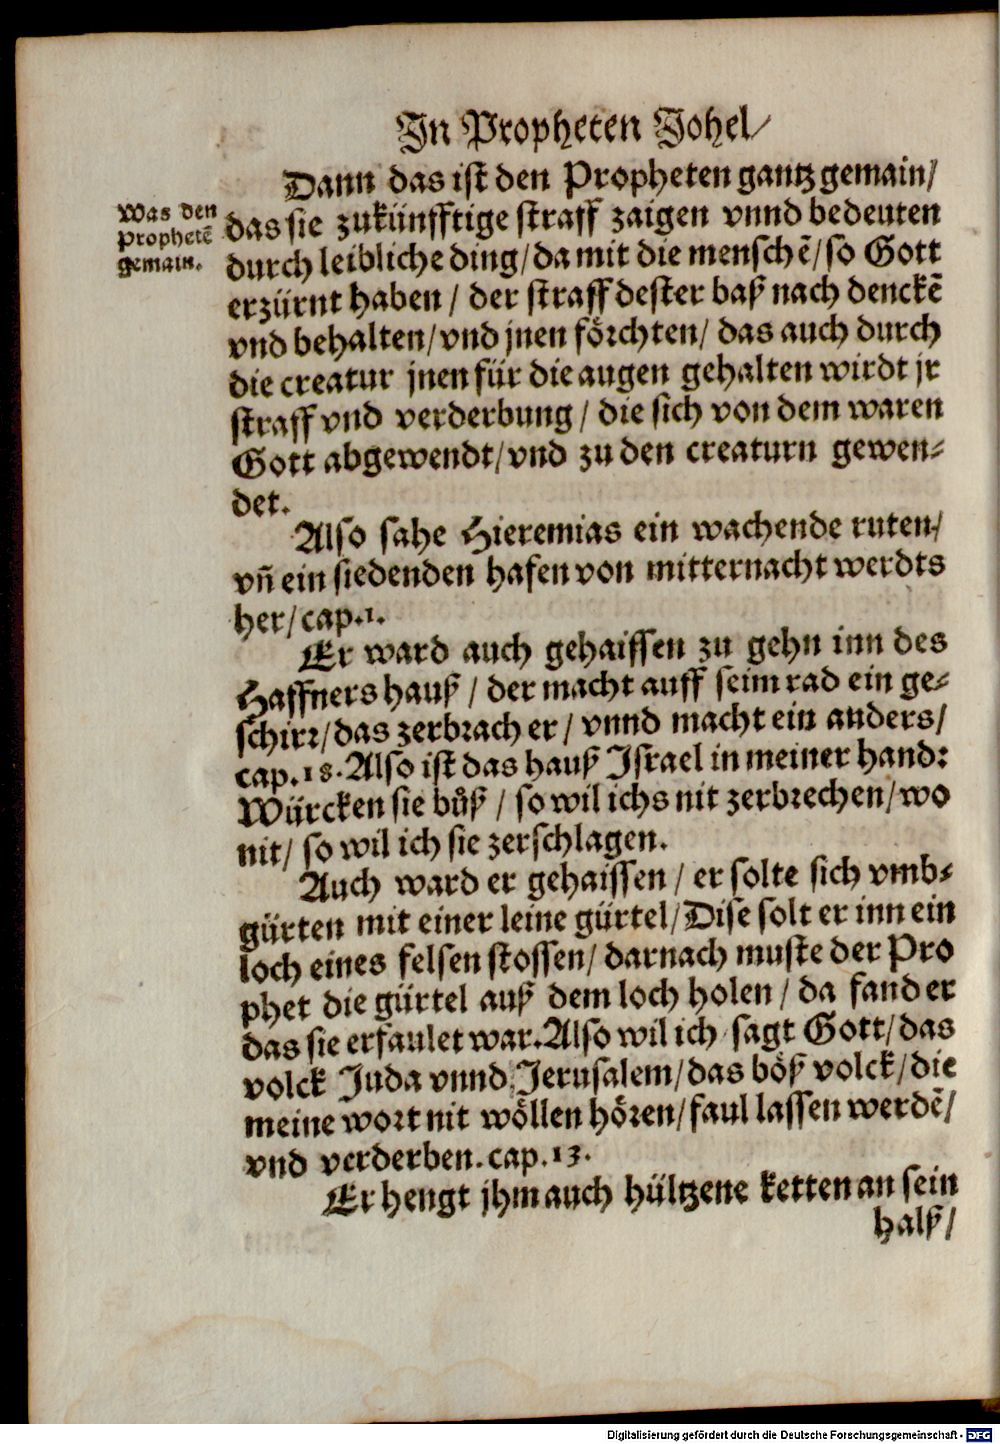 In Propheten Johel/
Dann das ist den Propheten gantz gemain/
Was den
Prophetē
gemain.
das sie zukünfftige straff zaigen vnnd bedeuten
durch leibliche ding/ da mit die menschē/ so Gott
erzürnt haben / der straff dester baß nach denckē
vnd behalten/ vnd jnen förchten/ das auch durch
die creatur jnen für die augen gehalten wirdt jr
straff vnd verderbung / die sich von dem waren
Gott abgewendt/ vnd zu den creaturn gewen-
det.
Also sahe Hieremias ein wachende ruten/
vñ ein siedenden hafen von mitternacht werdts
her/ cap.1.
Er ward auch gehaissen zu gehn inn des
Haffners hauß / der macht auff seim rad ein ge-
schirr/ das zerbrach er / vnnd macht ein anders/
cap.18. Also ist das hauß Israel in meiner hand:
Würcken sie bůß / so wil ichs nit zerbrechen/ wo
nit/ so wil ich sie zerschlagen.
Auch ward er gehaissen / er solte sich vmb-
gürten mit einer leine gürtel/ Dise solt er inn ein
loch eines felsen stossen/ darnach muste der Pro
phet die gürtel auß dem loch holen / da fand er
das sie erfaulet war. Also wil ich sagt Gott/ das
volck Juda vnnd Jerusalem/ das böß volck/ die
meine wort nit wöllen hören/ faul lassen werdē/
vnd verderben. cap.13.
Er hengt jhm auch hültzene ketten an sein
halß/
Digitalisierung gefördert durch die Deutsche Forschungsgemeinschaft - DFG